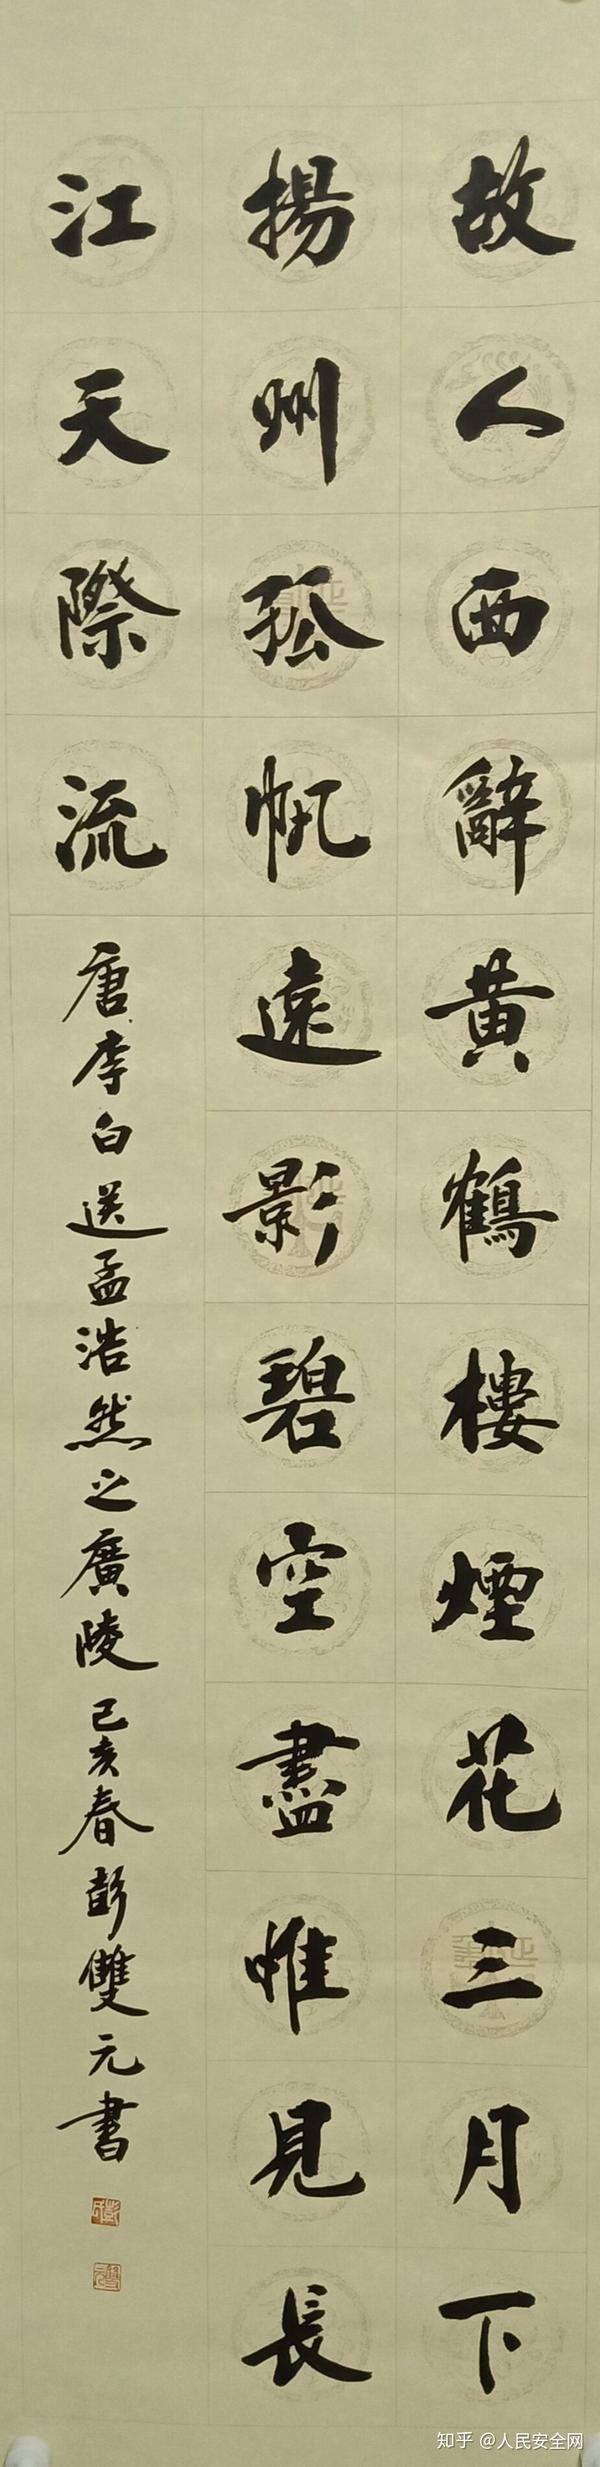 故人西辭黃鶴樓煙花三月下
揚州孤帆遠影碧空盡惟見長
江天際流
唐李白送孟浩然之廣陵 己亥春彭雙元書
知乎 @人民安全网